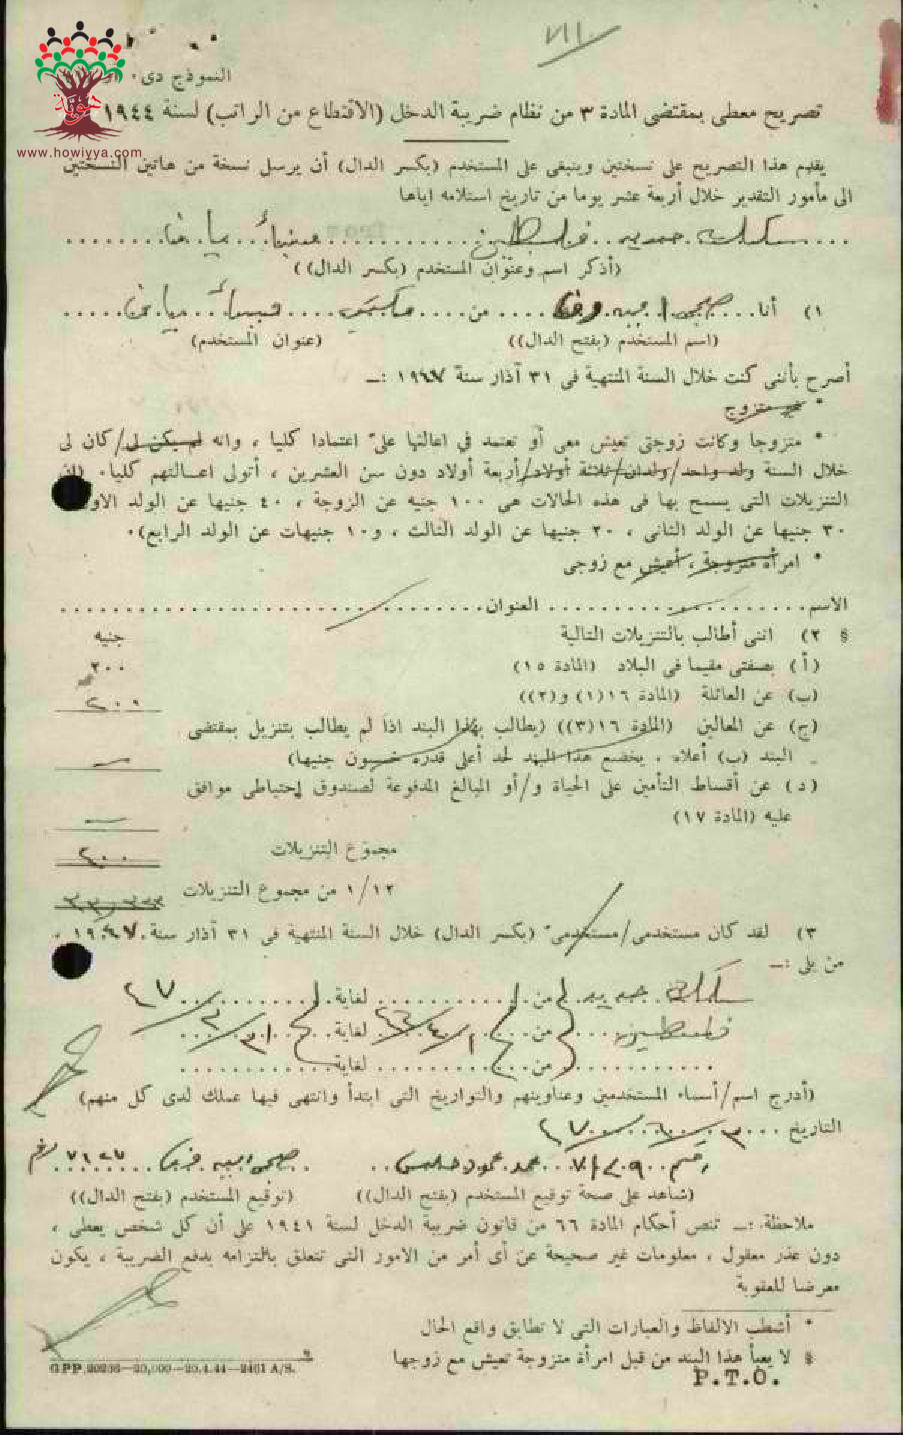 هوية
www.howiyya.com
النموذج دى٠
تصريح معطى بمقتضى المادة ٣ من نظام ضريبة الدخل (الاقتطاع من الراتب) لسنة ١٩٤٤
يقدم هذا التصريح على نسختين وينبغى على المستخدم (بكسر الدال) أن يرسل نسخة من هاتين النسختين
الى مأمور التقدير خلال أربعة عشر يوما من تاريخ استلامه اياها
سكك حديد فلسطين ميناء يافا
(أذكر اسم وعنوان المستخدم (بكسر الدال))
١) أنا صبحي من ميناء يافا
(اسم المستخدم (بفتح الدال)) (عنوان المستخدم)
أصرح بأننى كنت خلال السنة المنتهية فى ٣١ آذار سنة ١٩٤٧ :ــ
* غير متزوج
* متزوجا وكانت زوجتى تعيش معى أو تعتمد في اعالتها علىّ اعتمادا كليا ، وانه لم يكن لى/كان لى
خلال السنة ولد واحد/ولدان/ثلاثة أولاد/أربعة أولاد دون سن العشرين ، أتولى اعالتهم كليا٠ (ان
التنزيلات التى يسمح بها فى هذه الحالات هى ١٠٠ جنيه عن الزوجة ، ٤٠ جنيها عن الولد الاول
٣٠ جنيها عن الولد الثانى ، ٢٠ جنيها عن الولد الثالث ، و١٠ جنيهات عن الولد الرابع)٠
* امرأة متزوجة ، أعيش مع زوجى
الاسم العنوان
§ ٢) اننى أطالب بالتنزيلات التالية جنيه
(أ) بصفتى مقيما فى البلاد (المادة ١٥) ٢٠٠
(ب) عن العائلة (المادة ١٦(١) و(٢)) ٢٠٠
(ج) عن المعالين (المادة ١٦(٣)) (يطالب بهذا البند اذا لم يطالب بتنزيل بمقتضى
البند (ب) أعلاه . يخضع هذا البند لحد أعلى قدره خمسون جنيها)
(د) عن أقساط التأمين على الحياة و/أو المبالغ المدفوعة لصندوق إحتياطى موافق
عليه (المادة ١٧)
مجموع التنزيلات
١/١٢ من مجموع التنزيلات
٣) لقد كان مستخدمى/مستخدمى* (بكسر الدال) خلال السنة المنتهية فى ٣١ آذار سنة ١٩٤٧ ،
من يلى :ــ
سكك حديد من لغاية
فلسطين من لغاية
من لغاية
(أدرج اسم/أسماء المستخدمين وعناوينهم والتواريخ التى ابتدأ وانتهى فيها عملك لدى كل منهم)
التاريخ
محمد محمود صبحي
(شاهد على صحة توقيع المستخدم (بفتح الدال)) (توقيع المستخدم (بفتح الدال))
ملاحظة :ــ تنص أحكام المادة ٦٦ من قانون ضريبة الدخل لسنة ١٩٤١ على أن كل شخص يعطى ،
دون عذر معقول ، معلومات غير صحيحة عن أى أمر من الامور التى تتعلق بالتزامه بدفع الضريبة ، يكون
معرضا للعقوبة
* أشطب الالفاظ والعبارات التى لا تطابق واقع الحال
§ لا يعبأ هذا البند من قبل امرأة متزوجة تعيش مع زوجها
GPP 20236—20,000—20.4.44—2461 A/S.
P.T.O.